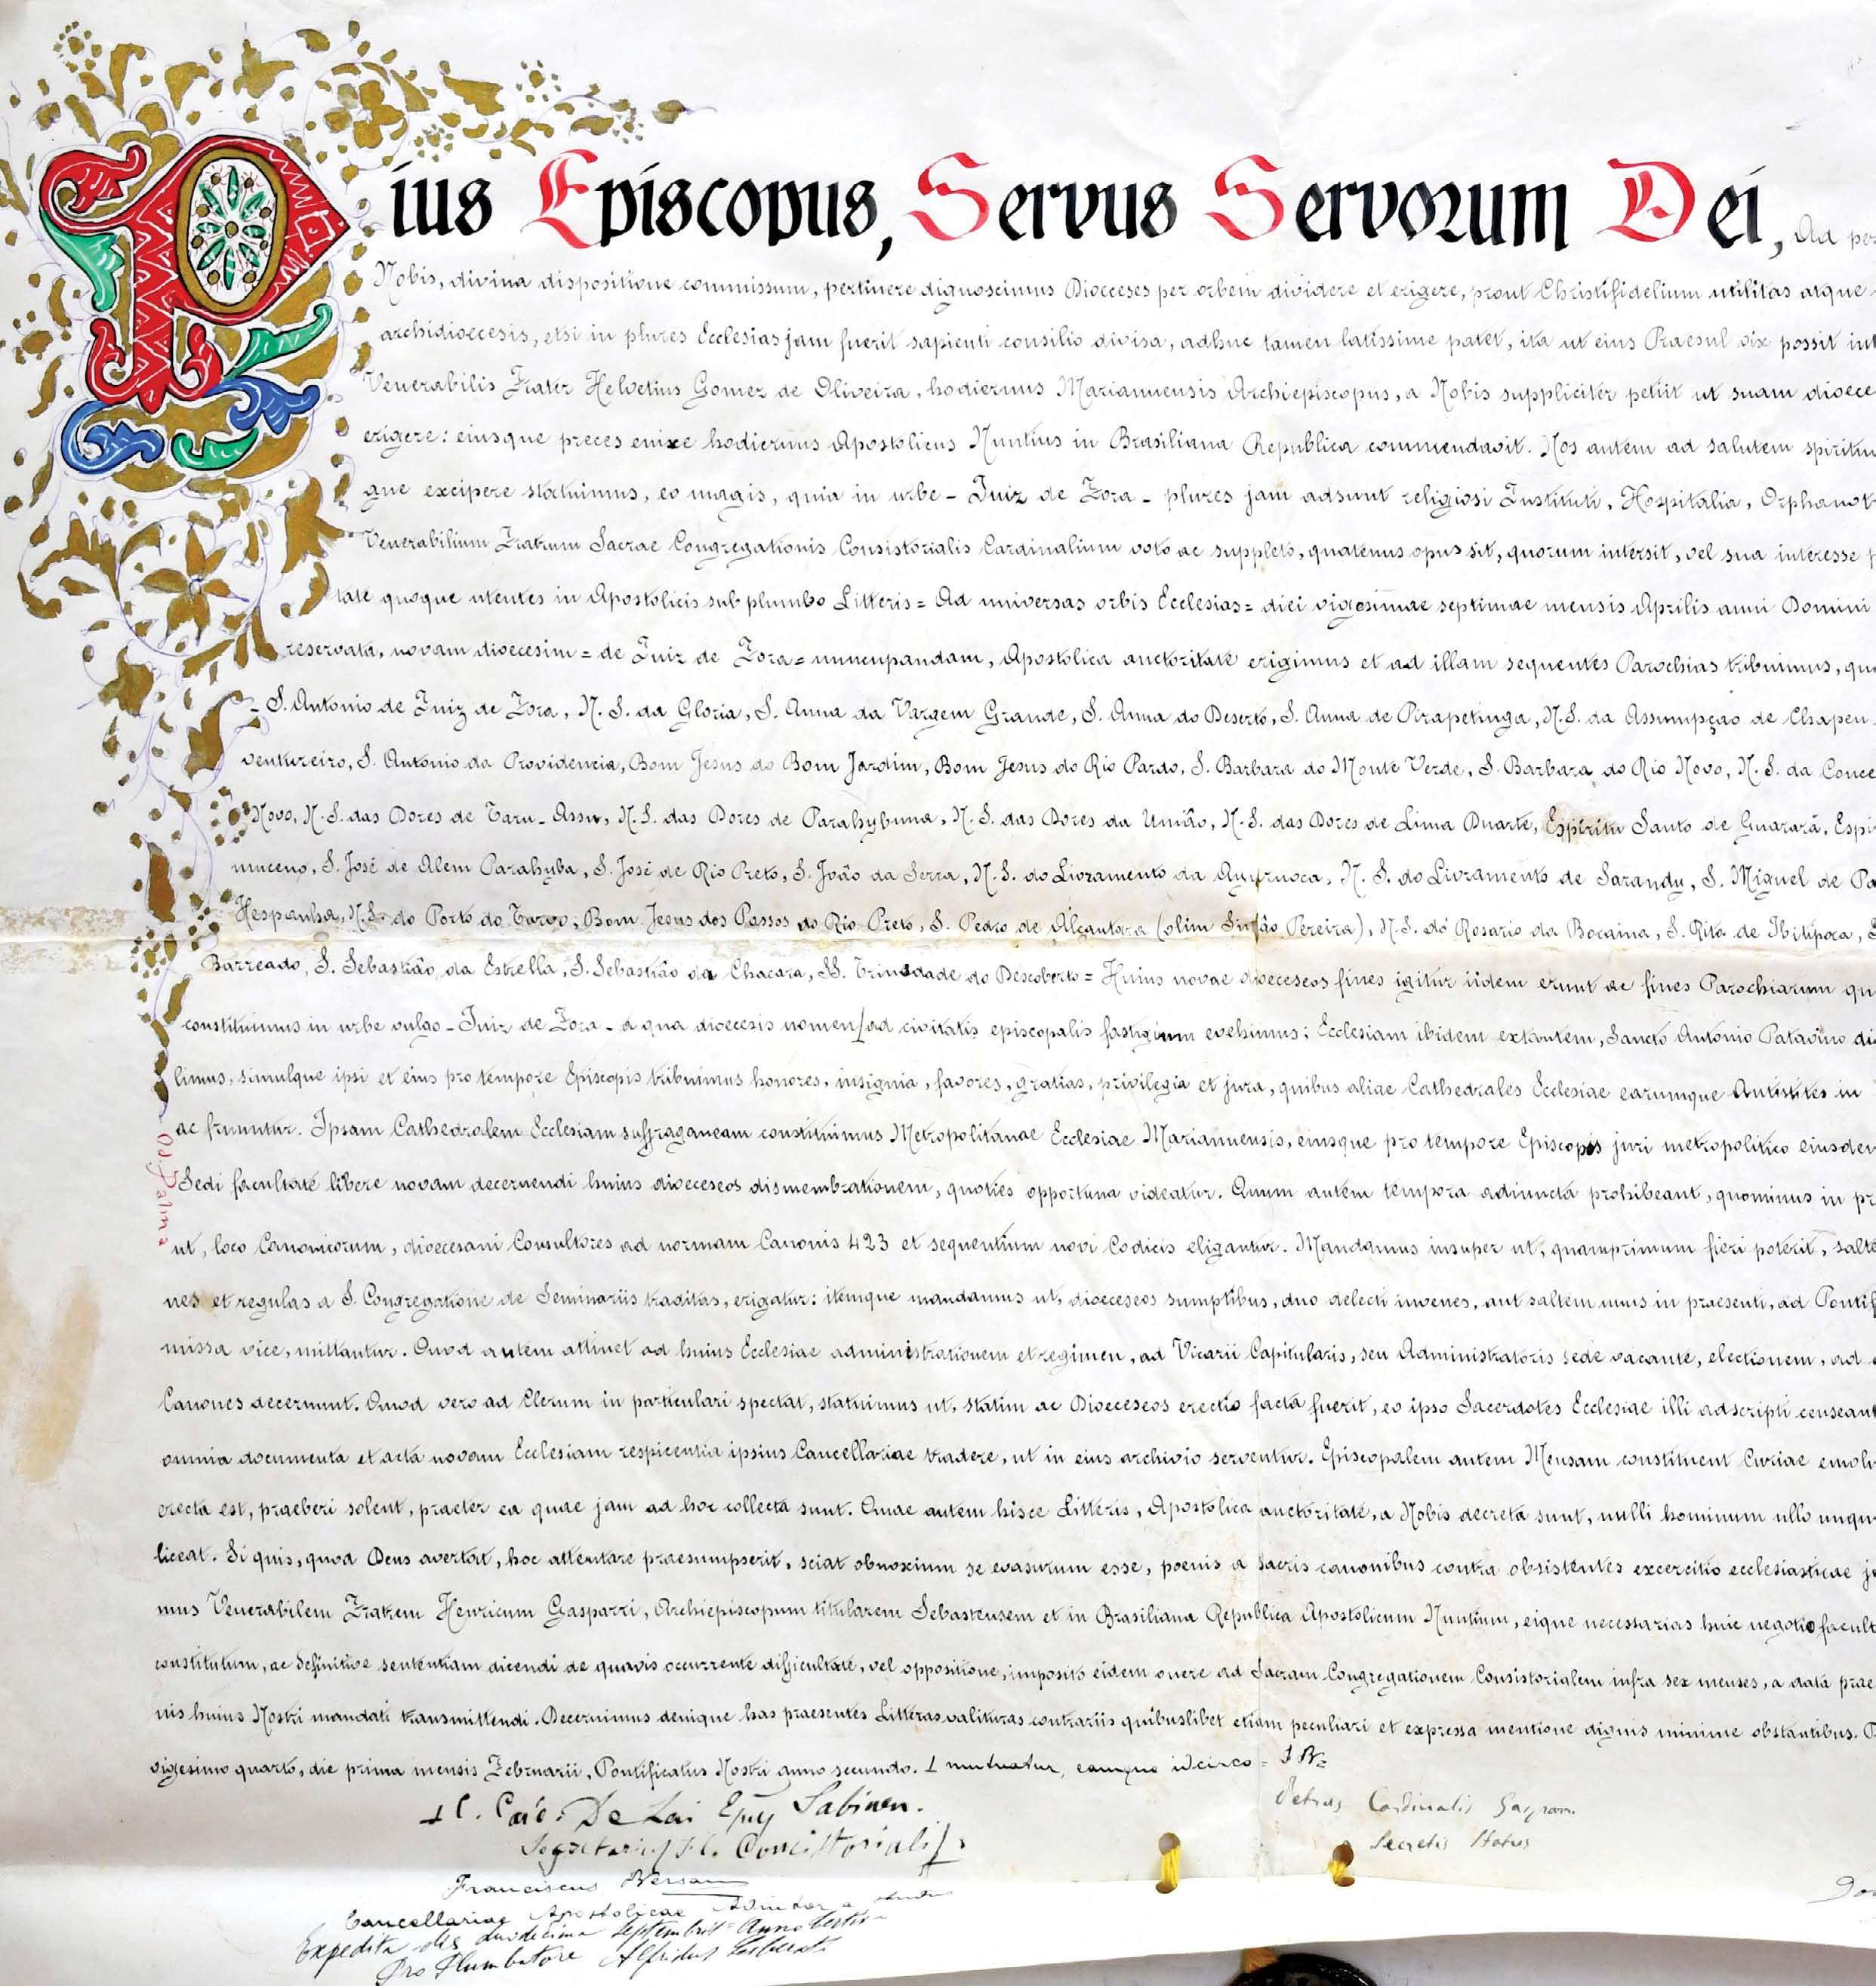 Pius Episcopus, Servus Servorum Dei, Ad per
Nobis, divina dispositione commissum, pertinere dignoscimus Dioeceses per orbem dividere et erigere, prout Christifidelium utilitas atque
archidioecesis, etsi in plures Ecclesias jam fuerit sapienti consilio divisa, adhuc tamen latissime patet, ita ut eius Praesul vix possit int
Venerabilis Frater Helvetius Gomez de Oliveira, hodiernus Mariannensis Archiepiscopus, a Nobis suppliciter petiit ut suam dioece
erigere: eiusque preces enixe hodiernus Apostolicus Nuntius in Brasiliana Republica commendavit. Nos autem ad salutem spiritu
que excipere statuimus, eo magis, quia in urbe - Juiz de Fora - plures jam adsunt religiosi Instituti, Hospitalia, Orphanot
Venerabilium Fratrum Sacrae Congregationis Consistorialis Cardinalium voto ac suppleto, quatenus opus sit, quorum intersit, vel sua interesse p
tate quoque utentes in Apostolicis sub plumbo Litteris = Ad universas orbis Ecclesias = diei vigesimae septimae mensis Aprilis anni Domini
reservata, novam dioecesim = de Juiz de Fora = nuncupandam, Apostolica auctoritate erigimus et ad illam sequentes Parochias tribuimus, qu
- S. Antonio de Juiz de Fora, N. S. da Gloria, S. Anna da Vargem Grande, S. Anna do Deserto, S. Anna de Pirapetinga, N. S. da Assumpção de Chapeu
ventureiro, S. Antonio da Providencia, Bom Jesus do Bom Jardim, Bom Jesus do Rio Pardo, S. Barbara do Monte Verde, S. Barbara do Rio Novo, N. S. da Conce
Novo, N. S. das Dores de Taru-Assu, N. S. das Dores de Parahybuna, N. S. das Dores da União, N. S. das Dores de Lima Duarte, Espiritu Santo de Guarará, Espi
muceno, S. José de Alem Parahyba, S. José de Rio Preto, S. João da Serra, N. S. do Livramento da Ayuruoca, N. S. do Livramento de Sarandy, S. Miguel de Pa
Hespanha, N. S. do Porto do Turvo, Bom Jesus dos Passos do Rio Preto, S. Pedro de Alcantara (olim Simão Pereira), N. S. do Rosario da Bocaina, S. Rita de Ibitipoca, S
Barreado, S. Sebastião da Estrella, S. Sebastião da Chacara, SS. Trinidade do Descoberto = Huius novae dioeceseos fines igitur iidem erunt ac fines Parochiarum qu
constituimus in urbe vulgo - Juiz de Fora - a qua dioecesis nomen ad civitatis episcopalis fastigium evehimus; Ecclesiam ibidem extantem, Sancto Antonio Patavino di
limus, simulque ipsi et eius pro tempore Episcopis tribuimus honores, insignia, favores, gratias, privilegia et jura, quibus aliae Cathedrales Ecclesiae earumque Antistites in
ac fruuntur. Ipsam Cathedralem Ecclesiam suffraganeam constituimus Metropolitanae Ecclesiae Mariannensis, eiusque pro tempore Episcopis juri metropolitico eiusdem
Sedi facultate libere novam decernendi huius dioeceseos dismembrationem, quoties opportuna videatur. Quum autem tempora adiuncta prohibeant, quominus in pr
ut, loco Canonicorum, dioecesani Consultores ad normam Canonis 423 et sequentium novi Codicis eligantur. Mandamus insuper ut, quamprimum fieri poterit, salte
nes et regulas a S. Congregatione de Seminariis traditas, erigatur: itemque mandamus ut, dioeceseos sumptibus, duo delecti iuvenes, aut saltem unus in praesenti, ad Pontif
missa vice, mittantur. Quod autem attinet ad huius Ecclesiae administrationem et regimen, ad Vicarii Capitularis, seu Administratoris sede vacante, electionem, ad
Canones decernunt. Quod vero ad Clerum in particulari spectat, statuimus ut, statim ac Dioeceseos erectio facta fuerit, eo ipso Sacerdotes Ecclesiae illi adscripti censeant
omnia documenta et acta novam Ecclesiam respicientia ipsius Cancellariae tradere, ut in eius archivio serventur. Episcopalem autem Mensam constituent Curiae emol
erecta est, praeberi solent, praeter ea quae jam ad hoc collecta sunt. Quae autem hisce Litteris, Apostolica auctoritate, a Nobis decreta sunt, nulli hominum ullo unqu
liceat. Si quis, quod Deus avertat, hoc attentare praesumpserit, sciat obnoxium se evasurum esse, poenis a sacris canonibus contra obsistentes excercitio ecclesiasticae j
mus Venerabilem Fratrem Henricum Gasparri, Archiepiscopum titularem Sebastensem et in Brasiliana Republica Apostolicum Nuntium, eique necessarias huic negotio facult
constitutum, ac definitive sententiam dicendi de quavis occurrente difficultate, vel oppositione, imposito eidem onere ad Sacram Congregationem Consistorialem infra sex menses, a data prae
nis huius Nostri mandati transmittendi. Decernimus denique has praesentes Litteras valituras contrariis quibuslibet etiam peculiari et expressa mentione dignis minime obstantibus.
vigesimo quarto, die prima mensis Februarii, Pontificatus Nostri anno secundo.
C. Card. De Lai Epus Sabinen.
Petrus Cardinalis Gasparri
Segretarius S. C. Concistorialis
Secretis Status
Franciscus
Cancellariae Apostolicae
Expedita die duodecima Septembris Anno
Pro Plumbatore Alfridus